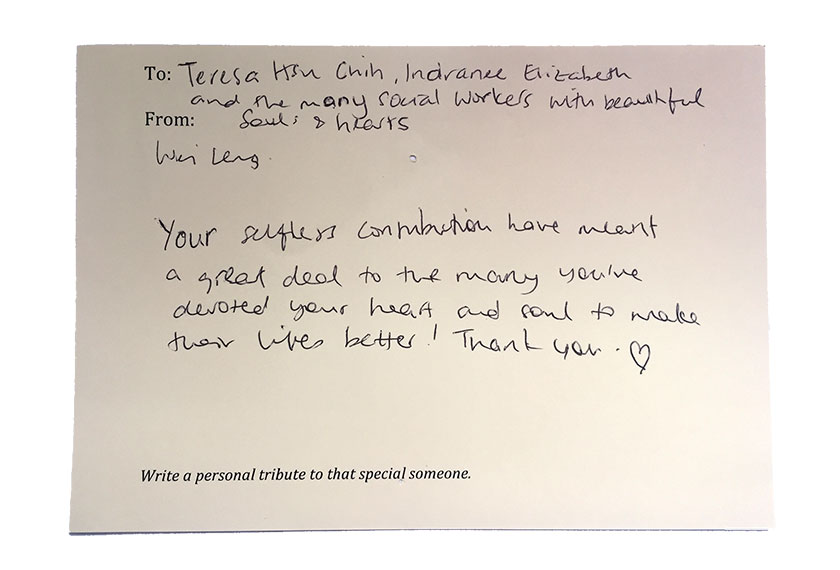 To: Teresa Hsu Chih, Indranee Elizabeth
and the many social workers with beautiful
From: Souls & hearts
Wei Leng.
Your selfless contribution have meant
a great deal to the many you've
devoted your heart and soul to make
their lives better! Thank you. ♡
Write a personal tribute to that special someone.